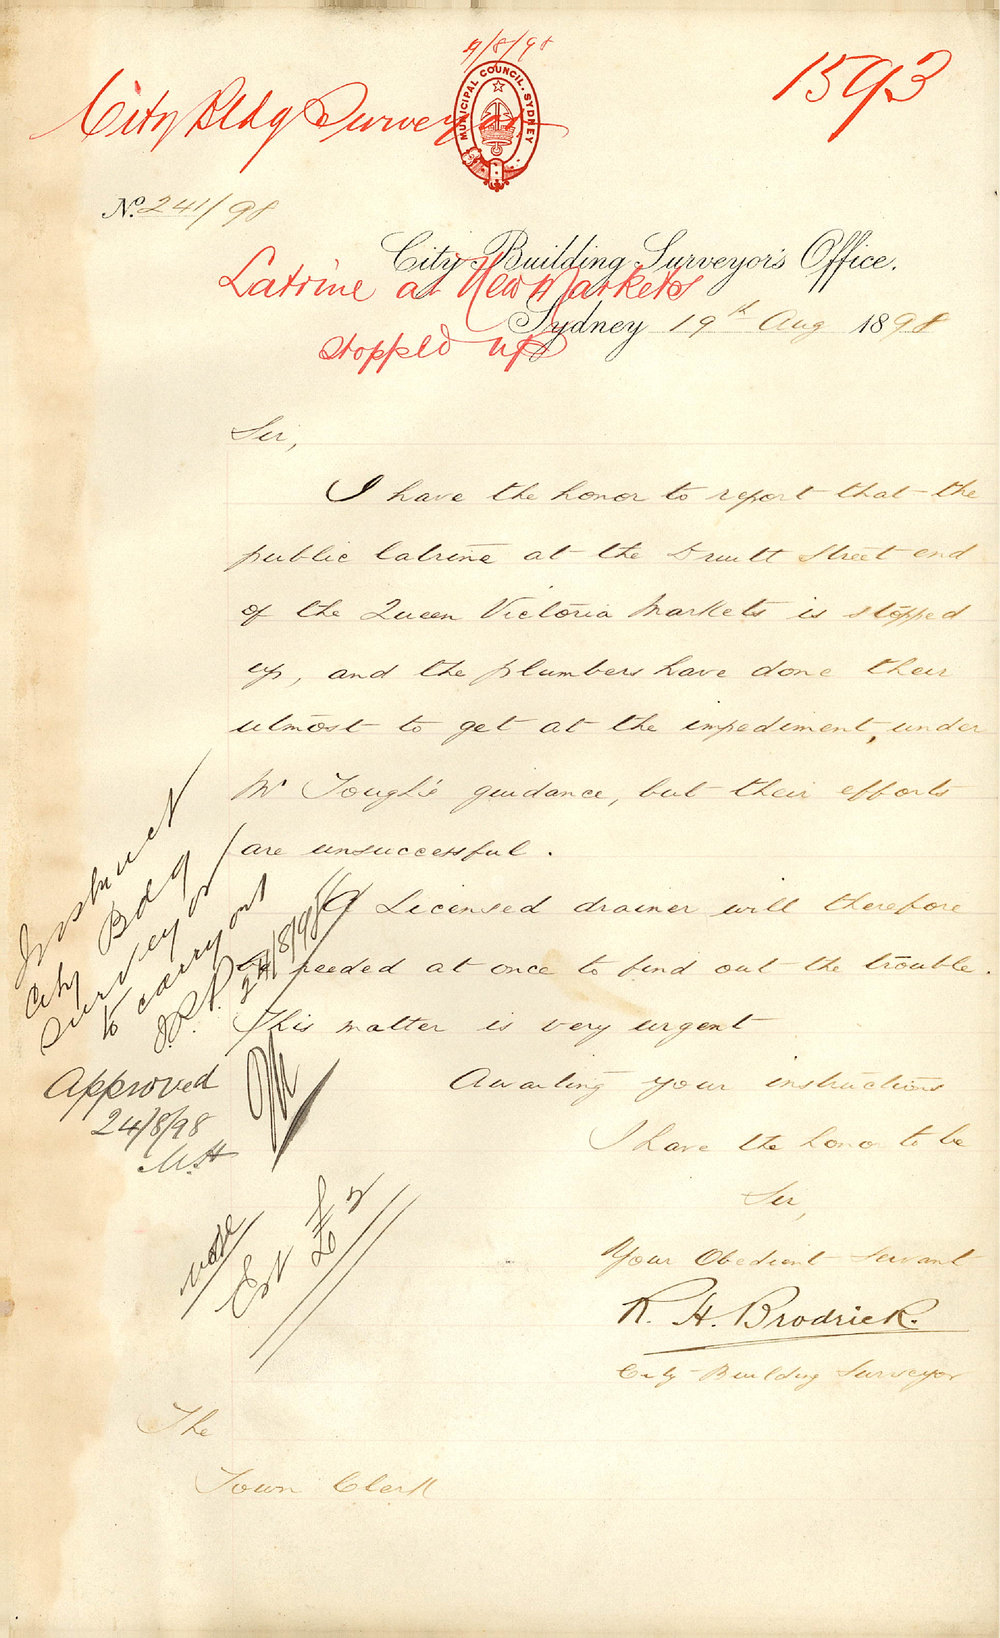 /8/98
City Bldg Surveyor
1593
MUNICIPAL COUNCIL. SYDNEY
No. 241/98
City Building Surveyor's Office.
Latrine at New Markets
Sydney 19th Aug 1898
stopped up
Sir,
I have the honor to report that the
public latrine at the Druitt Street end
of the Queen Victoria Markets is stopped
up, and the plumbers have done their
utmost to get at the impediment, under
Mr Tough's guidance, but their efforts
are unsuccessful.
A Licensed drainer will therefore
be needed at once to find out the trouble.
This matter is very urgent
Awaiting your instructions
I have the honor to be
Sir,
Your Obedient Servant
R. H. Brodrick.
City Building Surveyor
The
Town Clerk
Instruct
City Bdg
Surveyor
to carry out
24/8/98
Approved
24/8/98
M.H
Est £